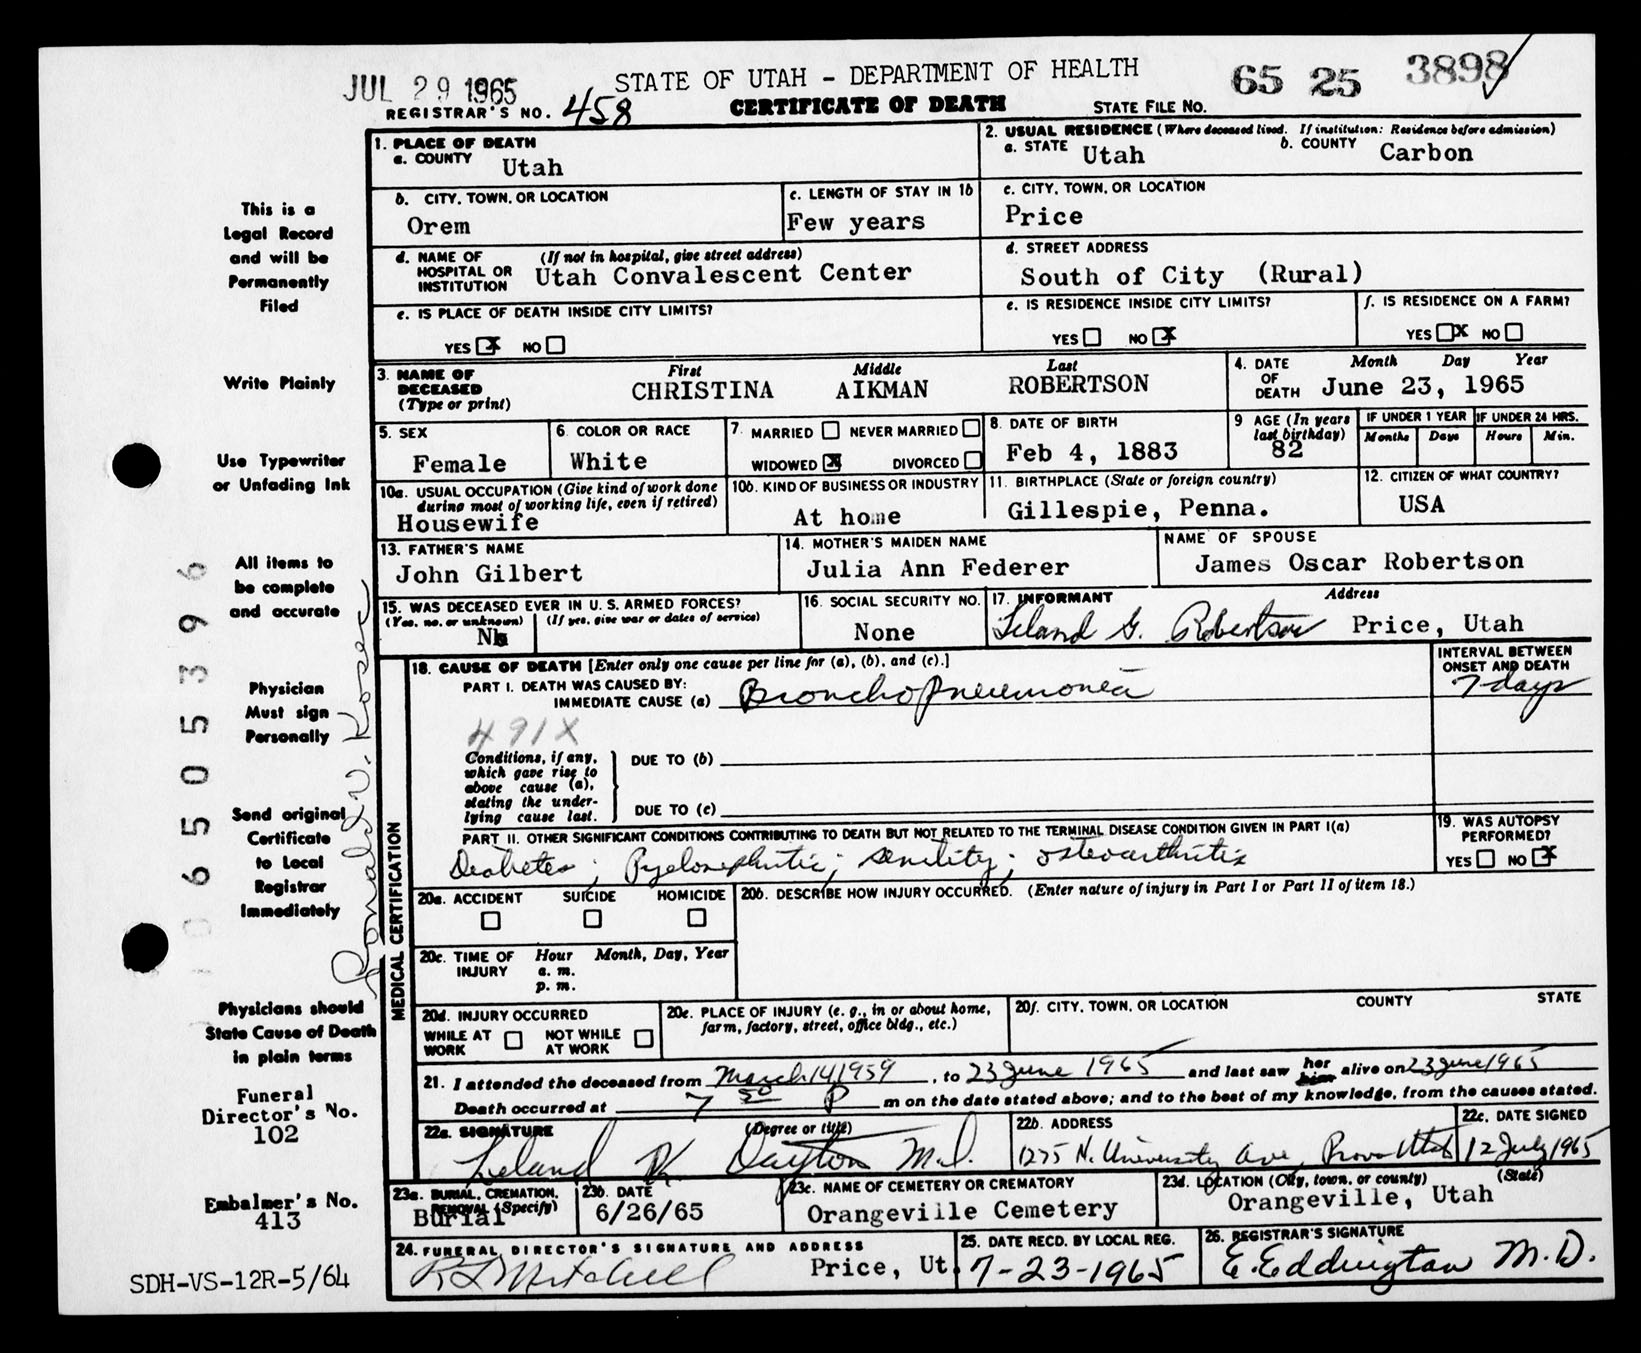 JUL 29 1965
STATE OF UTAH - DEPARTMENT OF HEALTH
65 25 3898
REGISTRAR'S NO. 458
CERTIFICATE OF DEATH
STATE FILE NO.
1. PLACE OF DEATH
a. COUNTY Utah
2. USUAL RESIDENCE (Where deceased lived. If institution: Residence before admission)
a. STATE Utah b. COUNTY Carbon
b. CITY, TOWN, OR LOCATION
Orem
c. LENGTH OF STAY IN 1b
Few years
c. CITY, TOWN, OR LOCATION
Price
d. NAME OF HOSPITAL OR INSTITUTION (If not in hospital, give street address)
Utah Convalescent Center
d. STREET ADDRESS
South of City (Rural)
e. IS PLACE OF DEATH INSIDE CITY LIMITS?
YES X NO
e. IS RESIDENCE INSIDE CITY LIMITS?
YES NO X
f. IS RESIDENCE ON A FARM?
YES X NO
3. NAME OF DECEASED (Type or print)
First Middle Last
CHRISTINA AIKMAN ROBERTSON
4. DATE OF DEATH Month Day Year
June 23, 1965
5. SEX
Female
6. COLOR OR RACE
White
7. MARRIED NEVER MARRIED
WIDOWED X DIVORCED
8. DATE OF BIRTH
Feb 4, 1883
9 AGE (In years last birthday)
82
IF UNDER 1 YEAR IF UNDER 24 HRS.
Months Days Hours Min.
10a. USUAL OCCUPATION (Give kind of work done during most of working life, even if retired)
Housewife
10b. KIND OF BUSINESS OR INDUSTRY
At home
11. BIRTHPLACE (State or foreign country)
Gillespie, Penna.
12. CITIZEN OF WHAT COUNTRY?
USA
13. FATHER'S NAME
John Gilbert
14. MOTHER'S MAIDEN NAME
Julia Ann Federer
NAME OF SPOUSE
James Oscar Robertson
15. WAS DECEASED EVER IN U.S. ARMED FORCES?
(Yes, no, or unknown) (If yes, give war or dates of service)
No
16. SOCIAL SECURITY NO.
None
17. INFORMANT Address
Leland G. Robertson Price, Utah
18. CAUSE OF DEATH [Enter only one cause per line for (a), (b), and (c).]
INTERVAL BETWEEN ONSET AND DEATH
PART I. DEATH WAS CAUSED BY:
IMMEDIATE CAUSE (a) Bronchopneumonia 7 days
491X
Conditions, if any, which gave rise to above cause (a), stating the underlying cause last.
DUE TO (b)
DUE TO (c)
PART II. OTHER SIGNIFICANT CONDITIONS CONTRIBUTING TO DEATH BUT NOT RELATED TO THE TERMINAL DISEASE CONDITION GIVEN IN PART I(a)
Diabetes; Pyelonephritis; senility; osteoarthritis
19. WAS AUTOPSY PERFORMED?
YES NO X
20a. ACCIDENT SUICIDE HOMICIDE
20b. DESCRIBE HOW INJURY OCCURRED. (Enter nature of injury in Part I or Part II of item 18.)
20c. TIME OF INJURY Hour Month, Day, Year
a. m.
p. m.
20d. INJURY OCCURRED
WHILE AT WORK NOT WHILE AT WORK
20e. PLACE OF INJURY (e. g., in or about home, farm, factory, street, office bldg., etc.)
20f. CITY, TOWN, OR LOCATION COUNTY STATE
21. I attended the deceased from March 14 1959, to 23 June 1965 and last saw her him alive on 23 June 1965
Death occurred at 7 50 P m on the date stated above; and to the best of my knowledge, from the causes stated.
22a. SIGNATURE (Degree or title)
Leland K. Dayton M.D.
22b. ADDRESS
1275 N. University Ave, Provo Utah
22c. DATE SIGNED
12 July 1965
23a. BURIAL, CREMATION, REMOVAL (Specify)
Burial
23b. DATE
6/26/65
23c. NAME OF CEMETERY OR CREMATORY
Orangeville Cemetery
23d. LOCATION (City, town, or county) (State)
Orangeville, Utah
24. FUNERAL DIRECTOR'S SIGNATURE AND ADDRESS
R L Mitchell Price, Ut.
25. DATE RECD. BY LOCAL REG.
7-23-1965
26. REGISTRAR'S SIGNATURE
E. Eddington M.D.
MEDICAL CERTIFICATION
This is a
Legal Record
and will be
Permanently
Filed
Write Plainly
Use Typewriter
or Unfading Ink
All items to
be complete
and accurate
Physician
Must sign
Personally
Send original
Certificate
to Local
Registrar
Immediately
Physicians should
State Cause of Death
in plain terms
Funeral
Director's No.
102
Embalmer's No.
413
SDH-VS-12R-5/64
06505396
Ronald V.